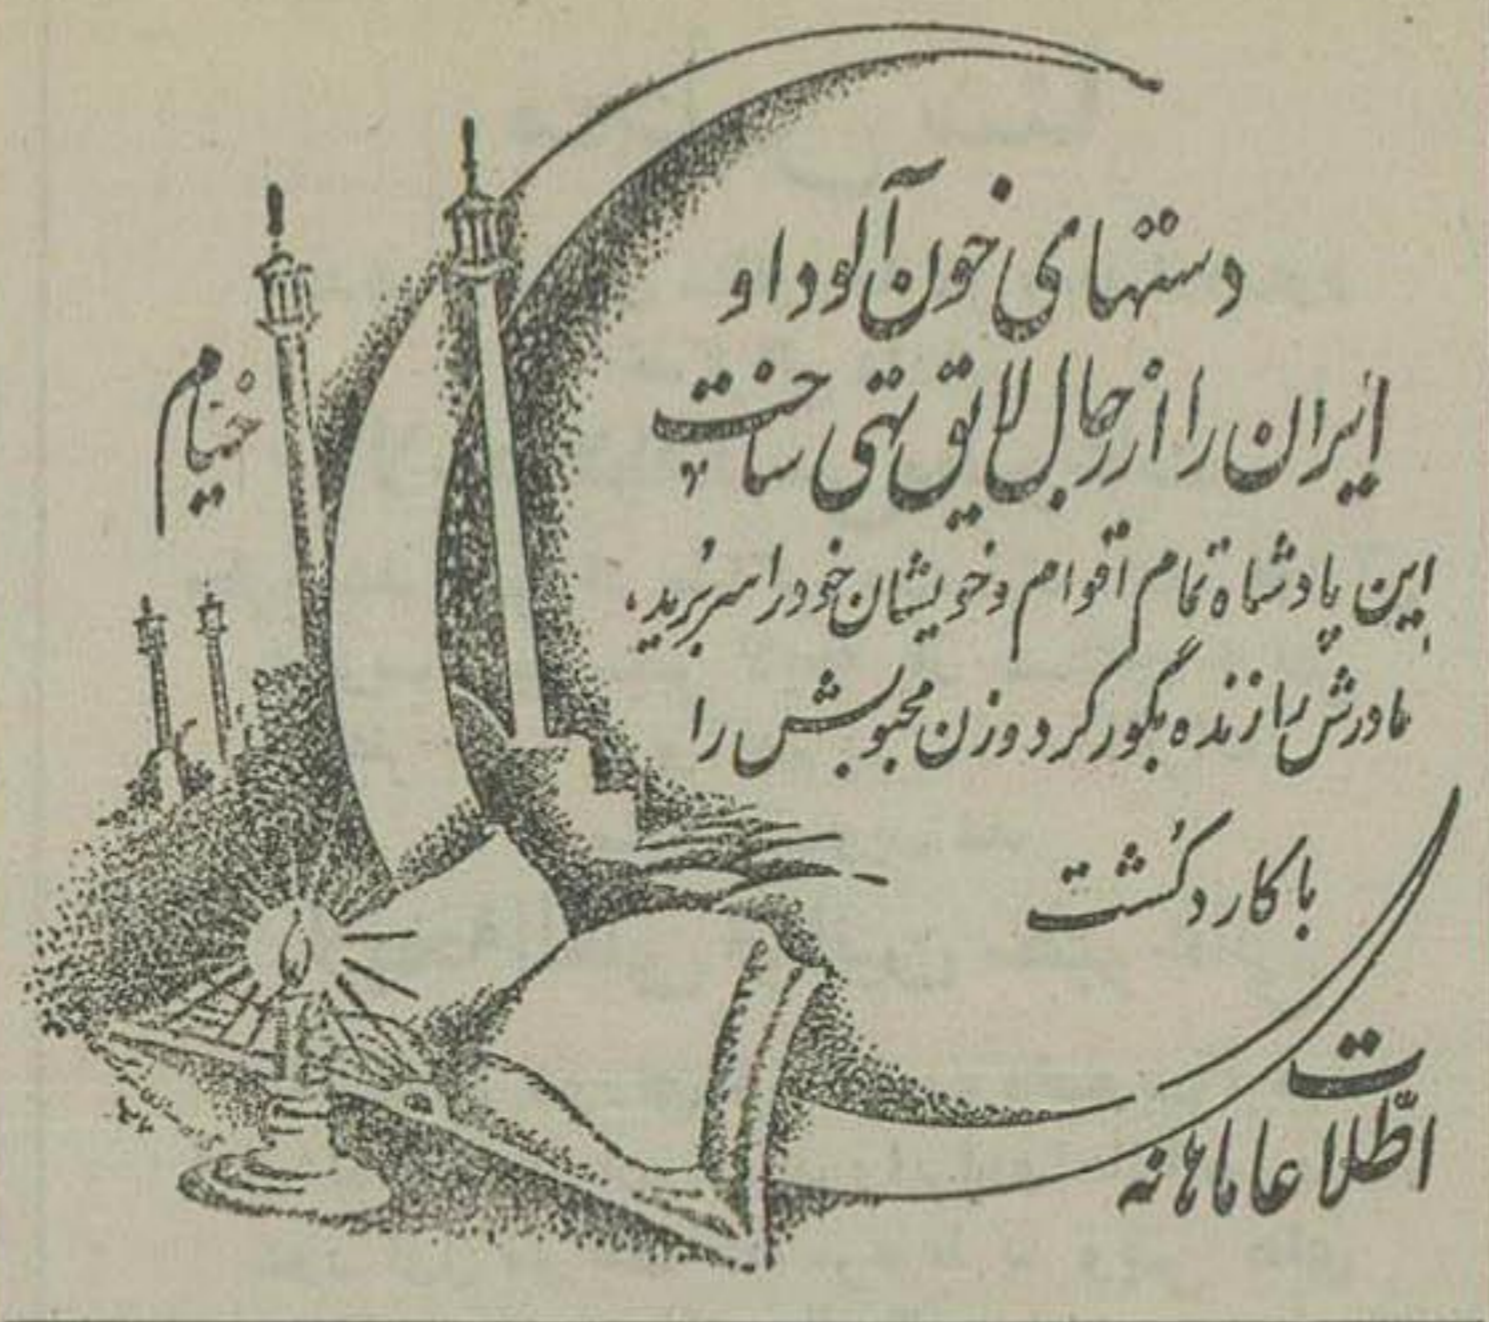 دستهای خون آلود او
ایران را از رجال لایق تهی ساخت
خیام
این پادشاه تمام اقوام و خویشان خود را سر بُرید،
مادرش را زنده بگور کرد و زن محبوبش را
با کارد کُشت
اطّلاعات ماهانه